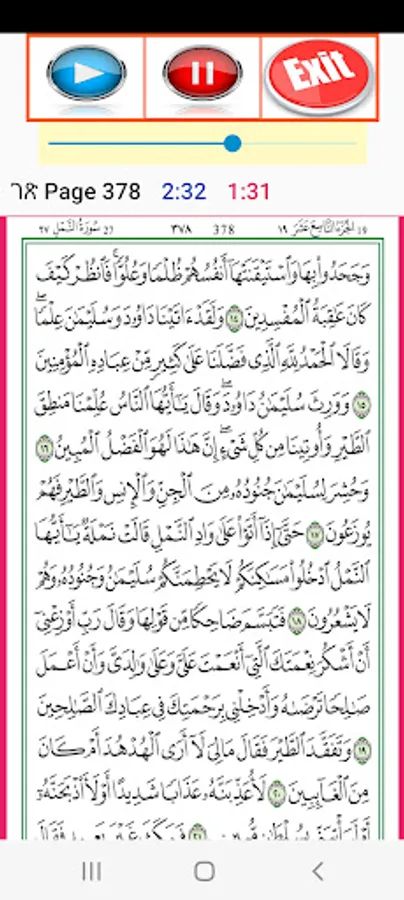 Exit
ገጽ Page 378 2:32 1:31
٢٧ سُورَةُ النَّمْلِ 27 ٣٧٨ 378 ١٩ الجُزْءُ التَّاسِعَ عَشَرَ 19
وَجَحَدُوا۟ بِهَا وَٱسْتَيْقَنَتْهَآ أَنفُسُهُمْ ظُلْمًا وَعُلُوًّا ۚ فَٱنظُرْ كَيْفَ
كَانَ عَٰقِبَةُ ٱلْمُفْسِدِينَ ١٤ وَلَقَدْ ءَاتَيْنَا دَاوُۥدَ وَسُلَيْمَٰنَ عِلْمًا ۖ
وَقَالَا ٱلْحَمْدُ لِلَّهِ ٱلَّذِى فَضَّلَنَا عَلَىٰ كَثِيرٍ مِّنْ عِبَادِهِ ٱلْمُؤْمِنِينَ
١٥ وَوَرِثَ سُلَيْمَٰنُ دَاوُۥدَ ۖ وَقَالَ يَٰٓأَيُّهَا ٱلنَّاسُ عُلِّمْنَا مَنطِقَ
ٱلطَّيْرِ وَأُوتِينَا مِن كُلِّ شَىْءٍ ۖ إِنَّ هَٰذَا لَهُوَ ٱلْفَضْلُ ٱلْمُبِينُ ١٦
وَحُشِرَ لِسُلَيْمَٰنَ جُنُودُهُۥ مِنَ ٱلْجِنِّ وَٱلْإِنسِ وَٱلطَّيْرِ فَهُمْ
يُوزَعُونَ ١٧ حَتَّىٰٓ إِذَآ أَتَوْا۟ عَلَىٰ وَادِ ٱلنَّمْلِ قَالَتْ نَمْلَةٌ يَٰٓأَيُّهَا
ٱلنَّمْلُ ٱدْخُلُوا۟ مَسَٰكِنَكُمْ لَا يَحْطِمَنَّكُمْ سُلَيْمَٰنُ وَجُنُودُهُۥ وَهُمْ
لَا يَشْعُرُونَ ١٨ فَتَبَسَّمَ ضَاحِكًا مِّن قَوْلِهَا وَقَالَ رَبِّ أَوْزِعْنِىٓ
أَنْ أَشْكُرَ نِعْمَتَكَ ٱلَّتِىٓ أَنْعَمْتَ عَلَىَّ وَعَلَىٰ وَٰلِدَىَّ وَأَنْ أَعْمَلَ
صَٰلِحًا تَرْضَىٰهُ وَأَدْخِلْنِى بِرَحْمَتِكَ فِى عِبَادِكَ ٱلصَّٰلِحِينَ
١٩ وَتَفَقَّدَ ٱلطَّيْرَ فَقَالَ مَا لِىَ لَآ أَرَى ٱلْهُدْهُدَ أَمْ كَانَ
مِنَ ٱلْغَآئِبِينَ ٢٠ لَأُعَذِّبَنَّهُۥ عَذَابًا شَدِيدًا أَوْ لَأَا۟ذْبَحَنَّهُۥٓ